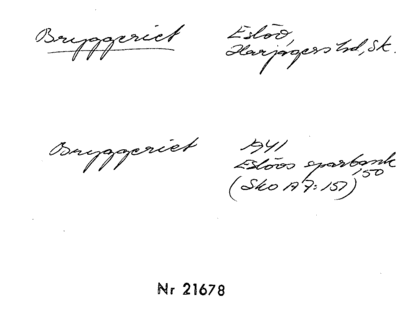 Bryggeriet Eslöv,
Harjagers hd, Sk.
Bryggeriet 1941
Eslövs sparbank
150
(Sko A 7:151)
Nr 21678